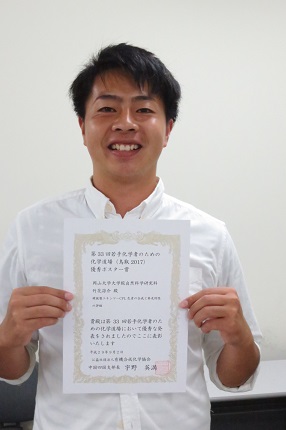 第 33 回若手化学者のための
化学道場（鳥取 2017）
優秀ポスター賞
岡山大学大学院自然科学研究科
貴殿は第 33 回若手化学者のた
めの化学道場において優秀な発
表をされましたのでここに表彰
いたします
平成２９年９月２日
公益社団法人有機合成化学協会
中国四国支部長　宇野 英満